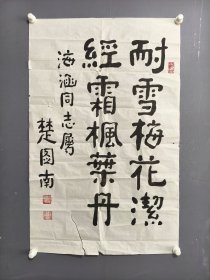 耐雪梅花潔
經霜楓葉丹
海涵同志屬
楚圖南